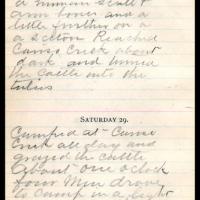 a human scull &
arm bones and a
little further on a
a section Reached
Camp Creek about
dark and turned
the Cattle into the
tules
SATURDAY 29.
Camped at Camp
Creek all day and
grazed the cattle
About one o'clock
four Men drove
to camp in a light